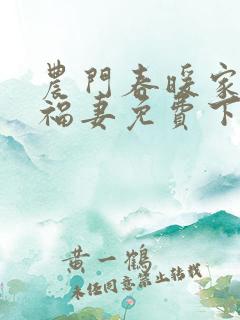 農門春暖家
福妻免費下
黄一鶴
未经同意禁止转载